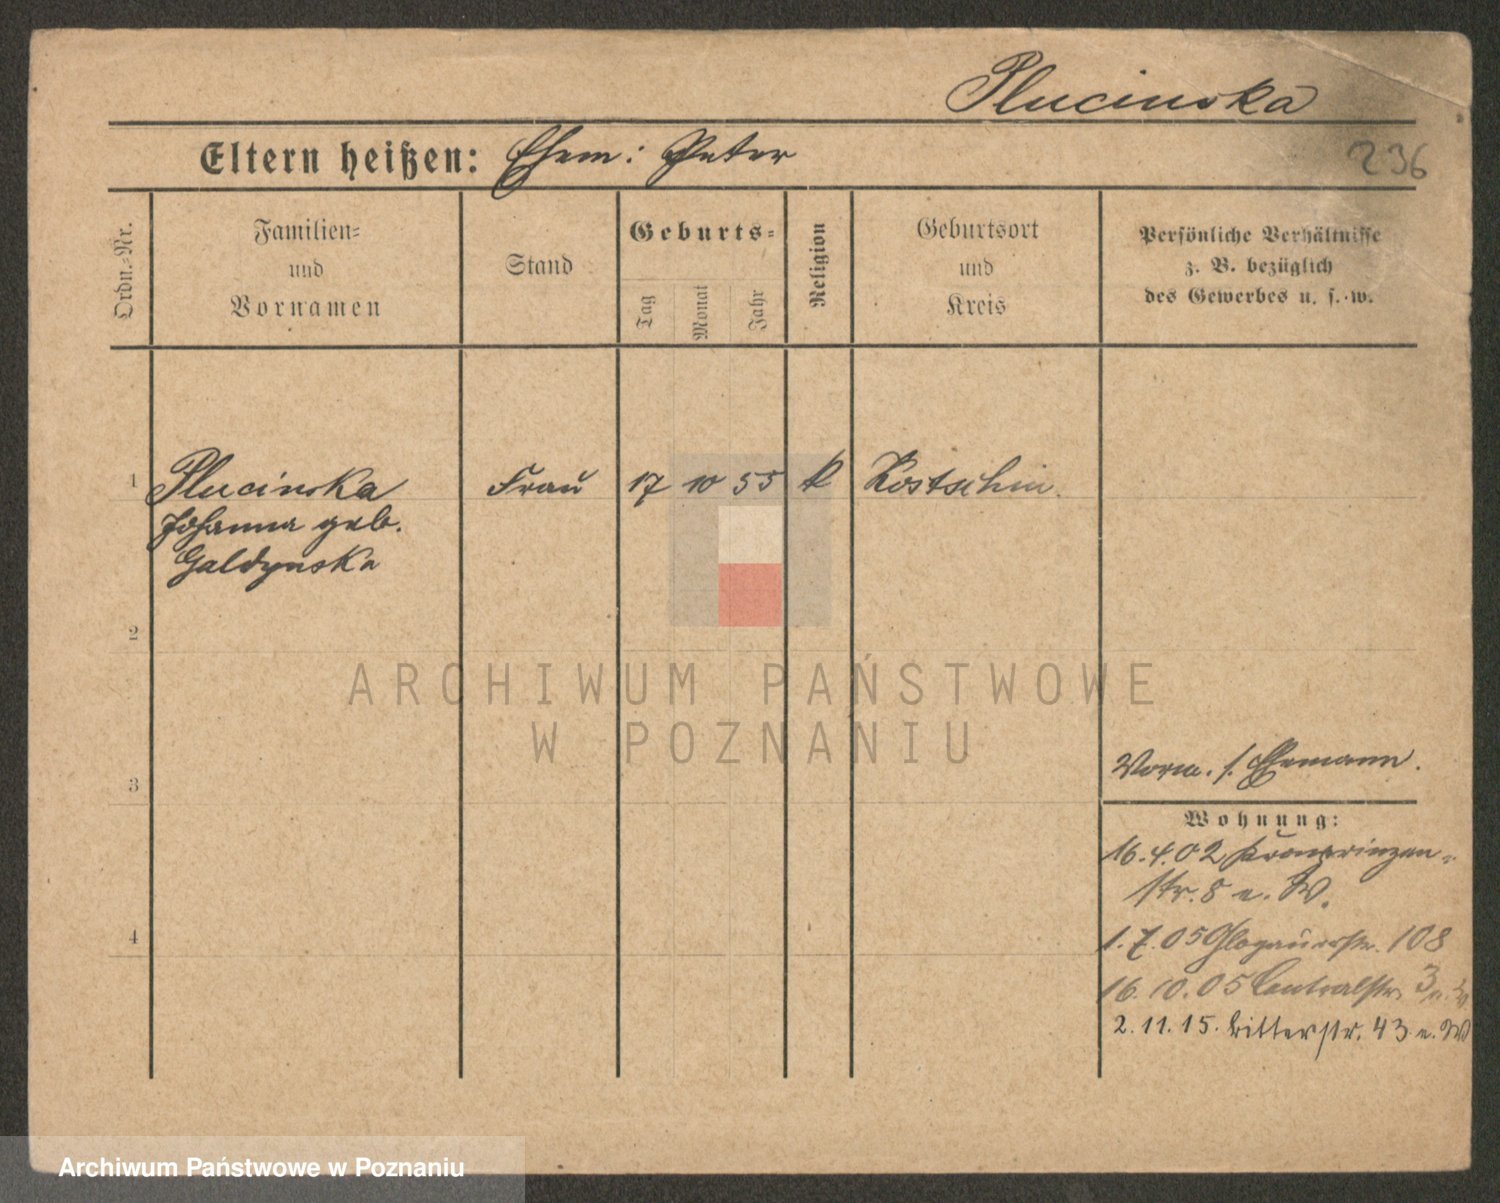 Plucinska
Eltern heißen: Ehem: Peter
236
Ordn.-Nr.
Familien-
und
Vornamen
Stand
Geburts-
Tag
Monat
Jahr
Religion
Geburtsort
und
Kreis
Persönliche Verhältnisse
z. B. bezüglich
des Gewerbes u. s. w.
1 Plucinska Frau 17 10 55 k Kostschin.
Johanna geb.
Galdynska
2
ARCHIWUM PAŃSTWOWE
W POZNANIU
Vorm. s. Ehemann.
3
Wohnung:
16.4.02 Kronprinzen-
str. 8 e. W.
4
1.7.05 Glogauerstr. 108
16.10.05 Centralstr. 3 e. W.
2.11.15. Ritterstr. 43 e. W
Archiwum Państwowe w Poznaniu